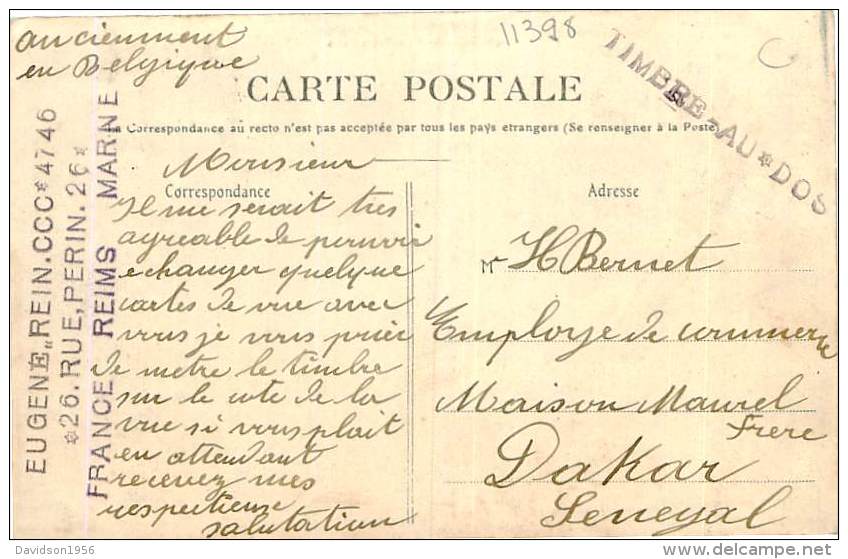 anciennment
en Belgique
11398
C
TIMBRE-AU*DOS
CARTE POSTALE
La Correspondance au recto n'est pas acceptée par tous les pays etrangers (Se renseigner à la Poste)
EUGENE„REIN.CCC*4746
*26.RUE,PERIN.26*
FRANCE REIMS MARNE
Monsieur
Correspondance
Il me serait tres
agreable de pouvoir
echanger quelque
cartes de vue avec
vous je vous prier
de metre le timbre
sur le cote de la
vue si vous plait
en attendant
recevez mes
respectieuse
salutation
Adresse
Mr H Bernet
Employe de commerce
Maison Maurel
frere
Dakar
Senegal
delcampe.net
Davidson1956